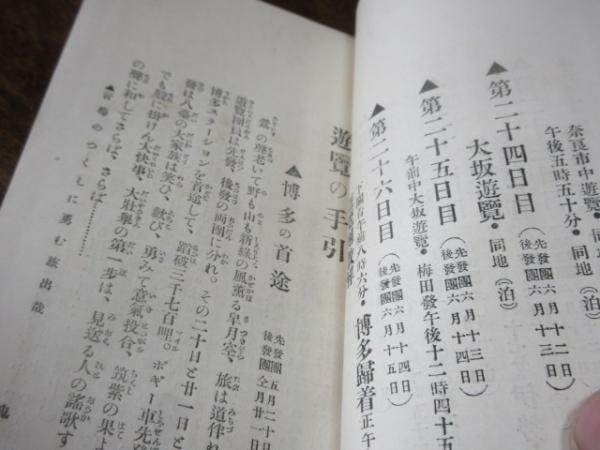 奈良市中遊覽・同
午後五時五十分・同地（泊）
▲第二十四日目（先發團六月十二日 後發團六月十三日）
大坂遊覽・同地（泊）
▲第二十五日目（先發團六月十三日 後發團六月十四日）
午前中大坂遊覽・梅田發午後十二時四十五
▲第二十六日目（先發團六月十四日 後發團六月十五日）
下關着午前八時六分・博多歸着正午
遊覽の手引
▲博多の首途 先發團五月二十日 後發團仝月廿一日
鶯の聲老いて野も山も新緑の風薫る皐月空、旅は道伴れ
遊覽團員は先發、後發の兩團に分れ。その二十日と廿一日と
博多ステーションを首途して、踏破三千七百哩。ボギー車先發
發は八臺の大家族は笑ひ、歡び、勇みて意氣投合、筑紫の果よ
でも股に掛けん大快事、大壯擧の第一歩は、見送る人の謠歌す
の聲に和してさらば、さらば
のつくしに勇む旅出哉